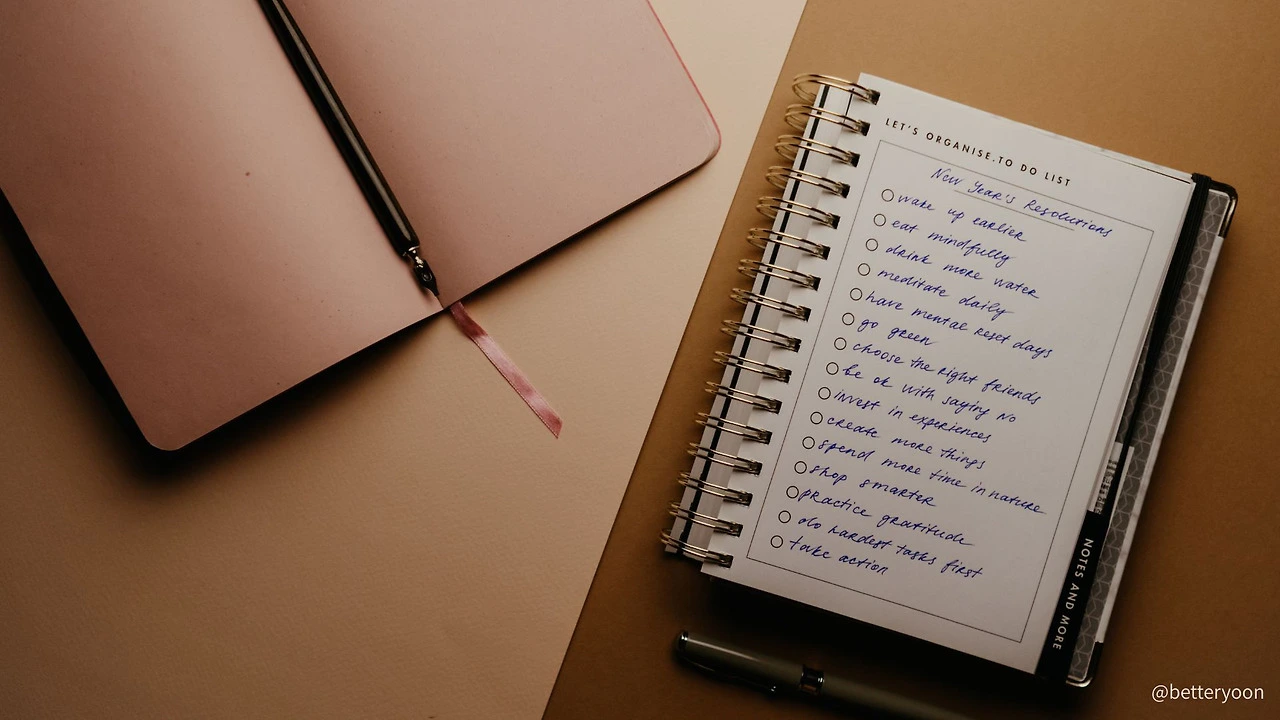 LET'S ORGANISE.TO DO LIST
New Year's Resolutions
wake up earlier
eat mindfully
drink more water
meditate daily
have mental reset days
go green
choose the right friends
be ok with saying no
invest in experiences
create more things
spend more time in nature
shop smarter
practice gratitude
do hardest tasks first
take action
NOTES AND MORE
@betteryoon